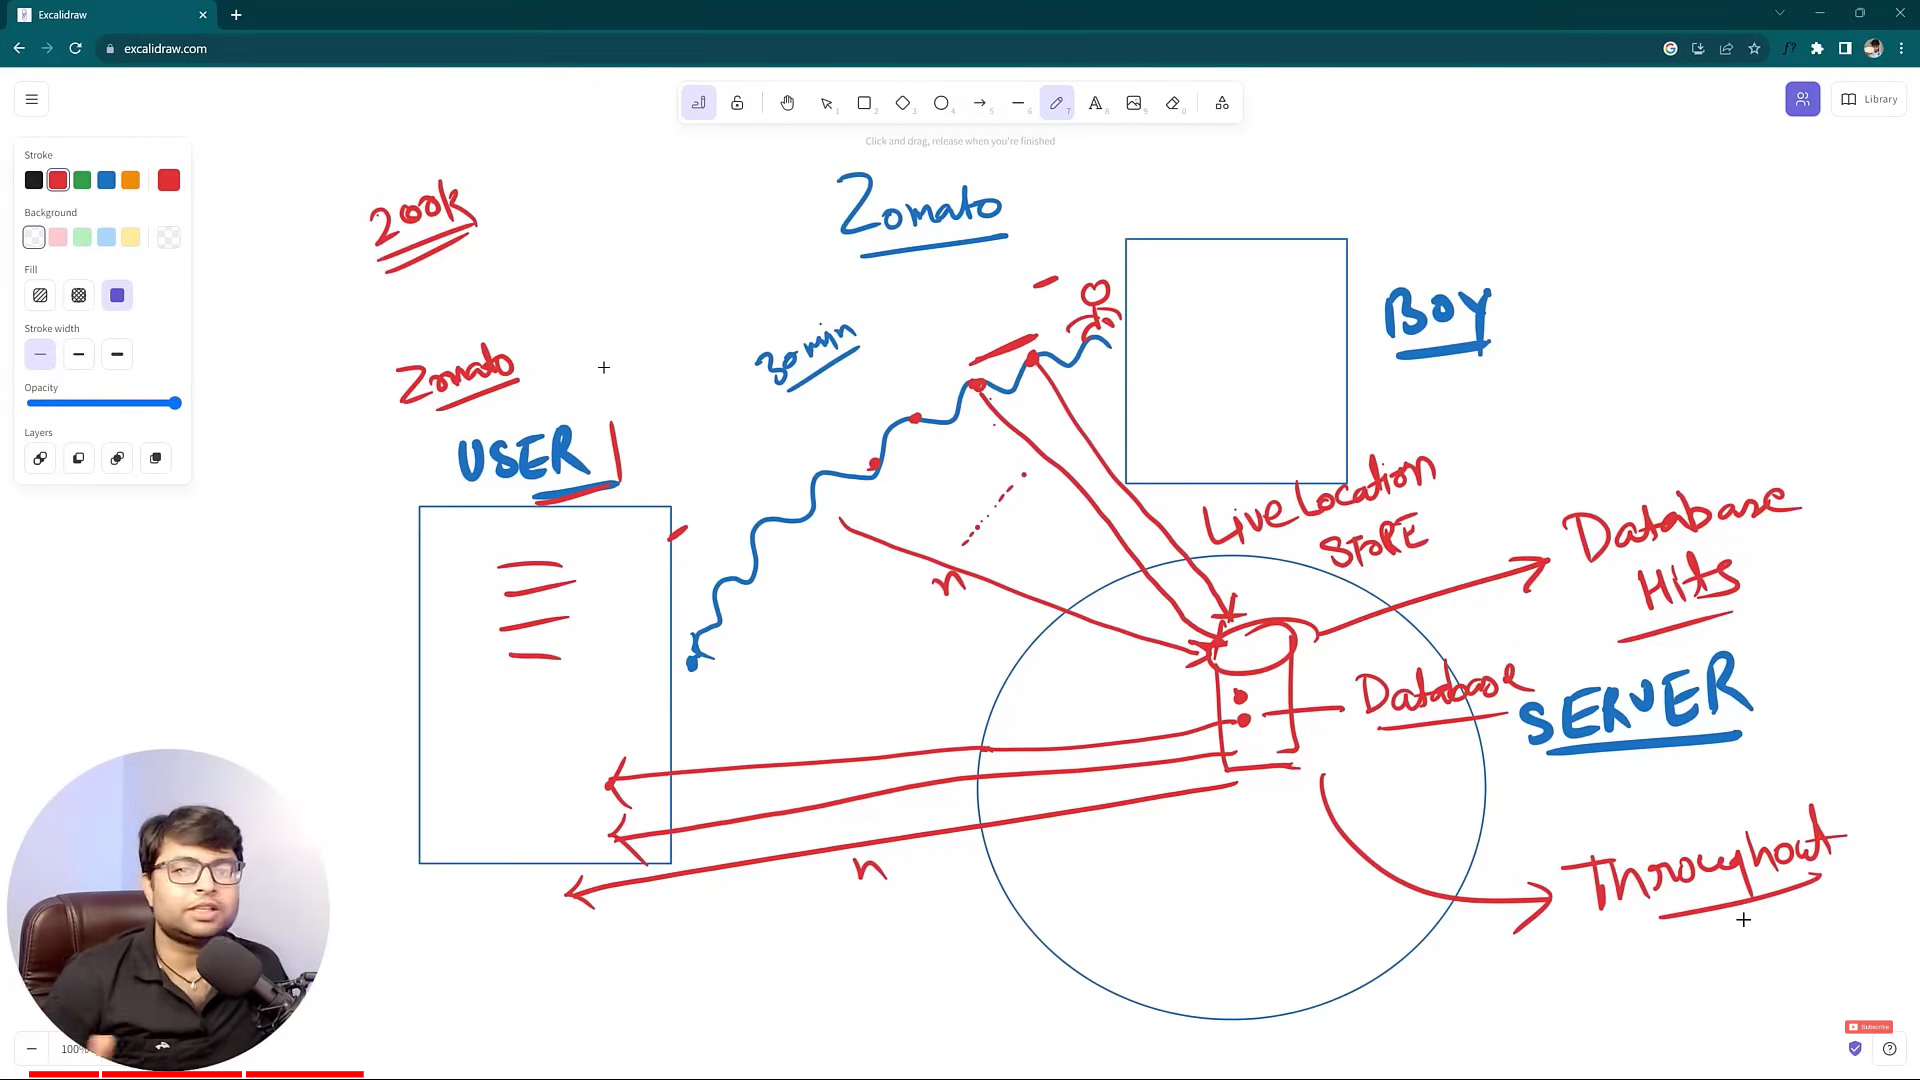 Excalidraw
excalidraw.com
f?
1
2
3
4
5
6
7
8
9
0
Library
Click and drag, release when you're finished
Stroke
Background
Fill
Stroke width
Opacity
Layers
200k
Zomato
BOY
30 min
Zomato
USER 1
Live Location
STORE
Database
Hits
n
Database
SERVER
n
Throughout
Subscribe
100%